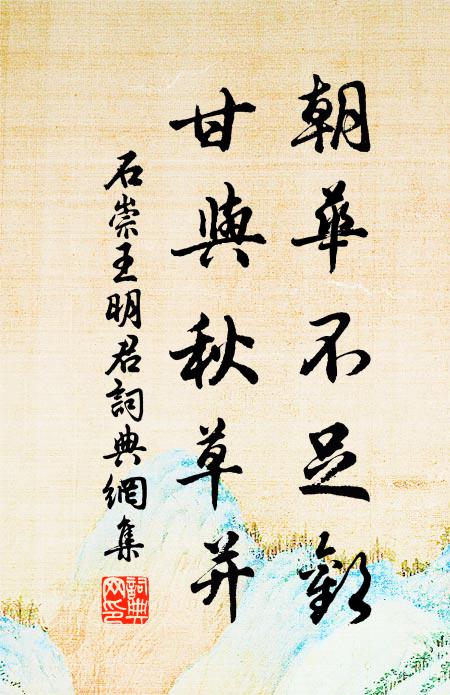 朝華不足歡
甘與秋草并
石崇王明君詞典網集
詞典网印